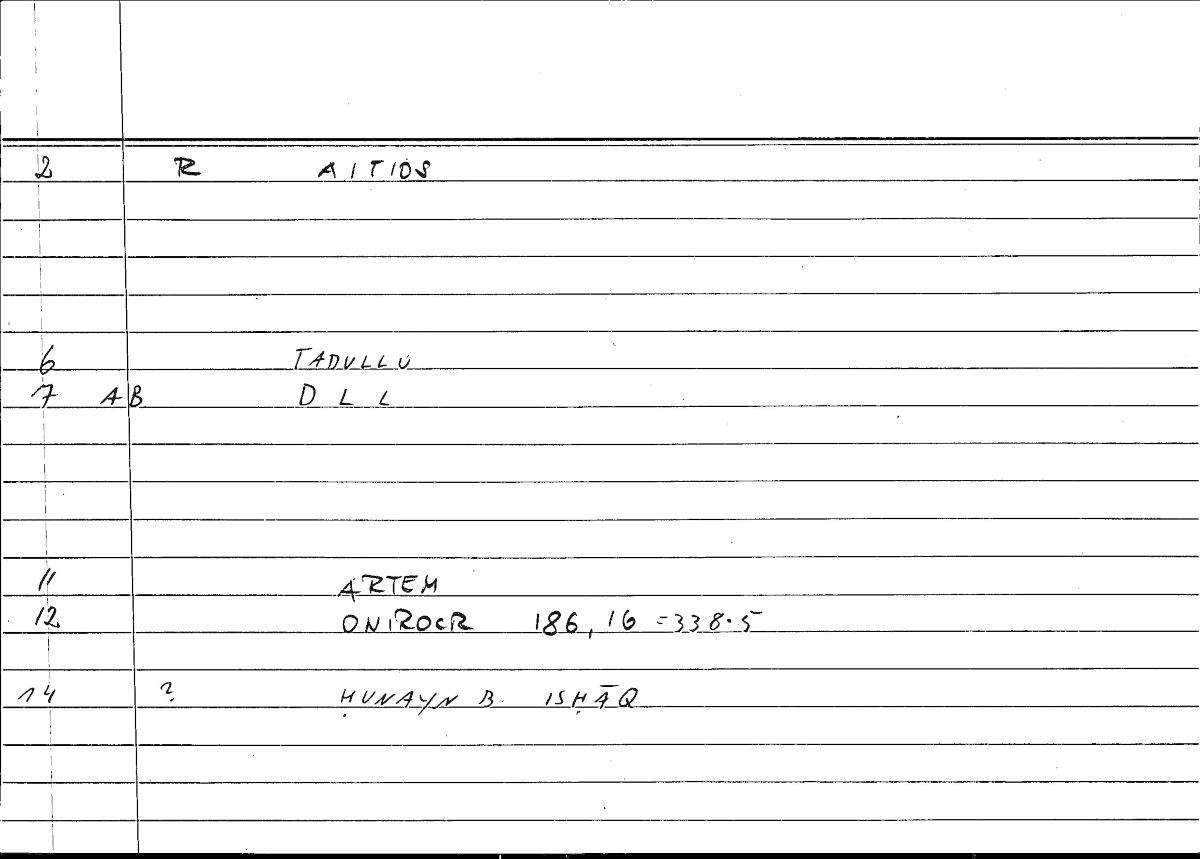 2 R AITIOS
6 TADULLU
7 AB D L L
11 ARTEM
12 ONIROCR 186,16 =338.5
14 ? ḤUNAYN B. ISḤĀQ